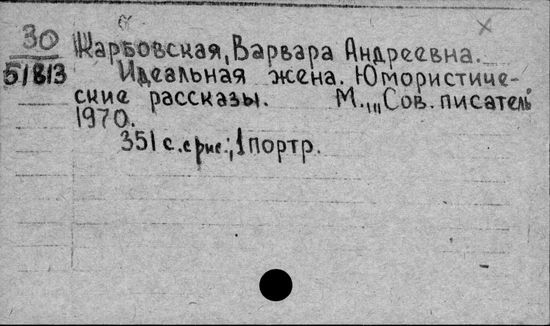 30 Карбовская, Варвара Андреевна.
51813 Идеальная жена. Юмористиче-
ские рассказы. М., „Сов. писатель"
1970.
351 с. с рис.; 1 портр.